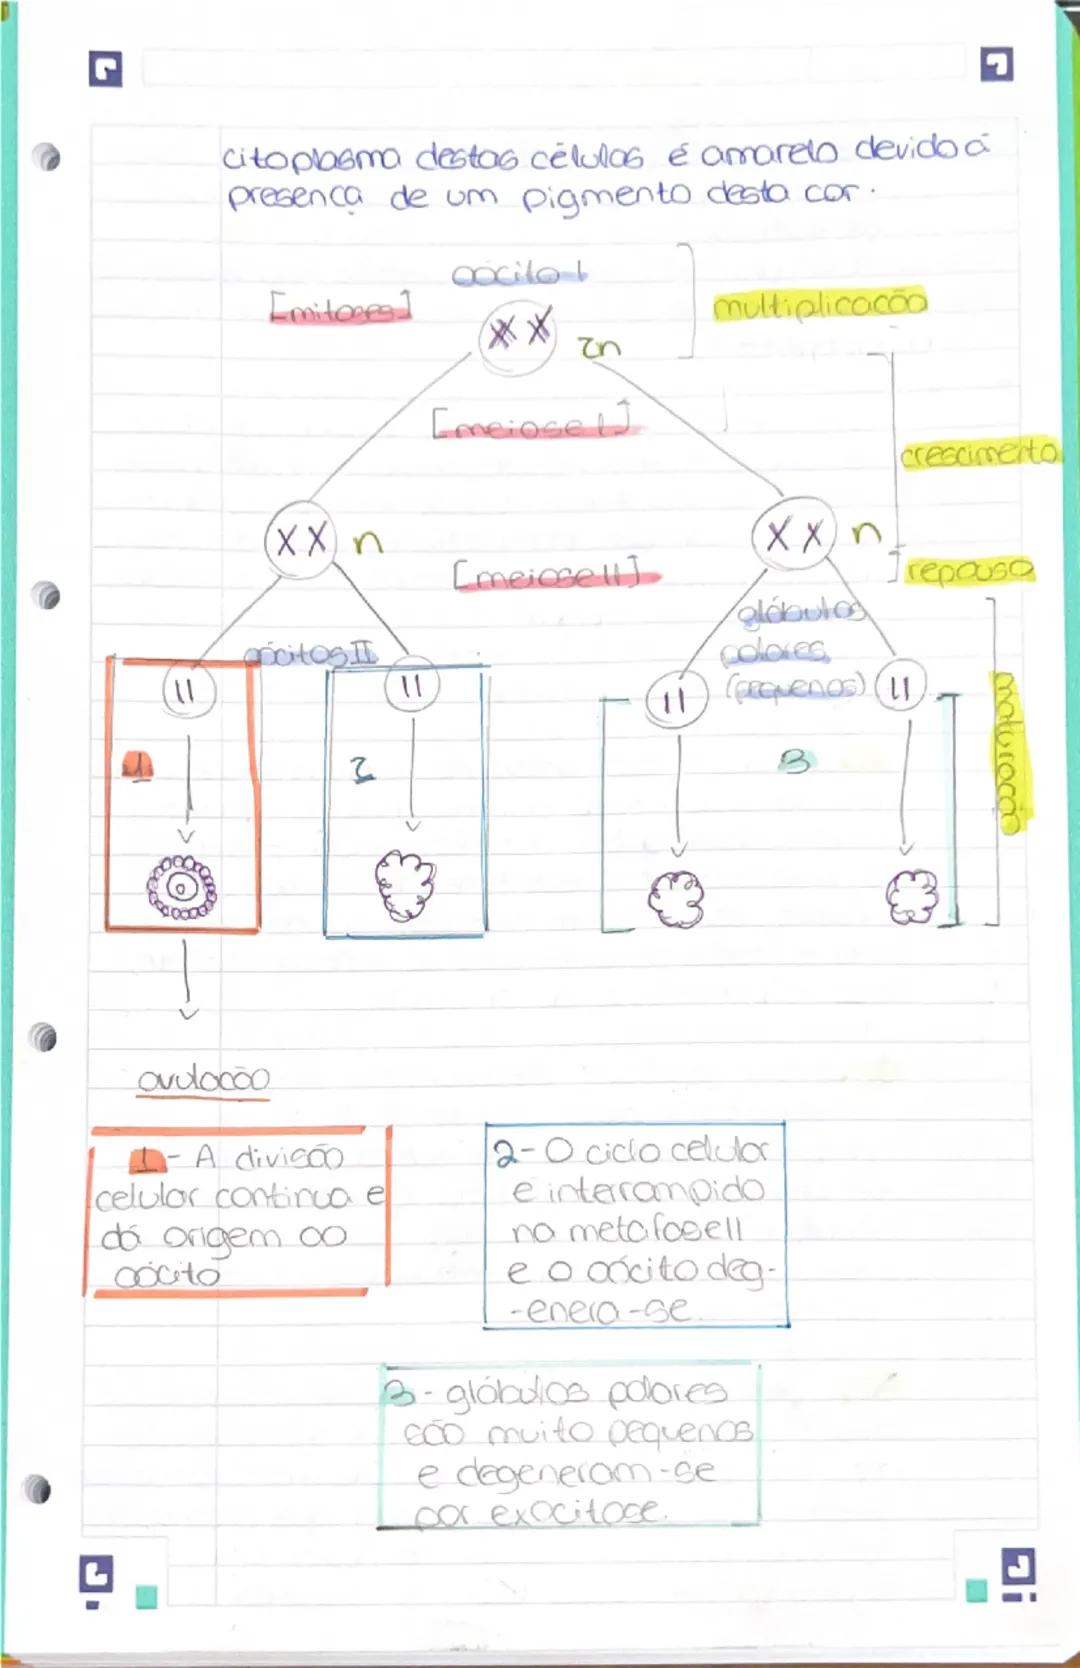 citoplasma destas células é amarelo devido á
presença de um pigmento desta cor.
oócito I
[mitoses]
multiplicação
2n
[meiose I]
crescimento
XX n
XX n
[meiose II]
repouso
glóbulos
polares
(pequenos)
oócitos II
maturação
1
2
3
ovulação
1 - A divisão
celular continua e
dá origem ao
oócito
2 - O ciclo celular
é interrompido
na metafase II
e o oócito deg-
-enera-se.
3 - glóbulos polares
são muito pequenos
e degeneram-se
por exocitose.